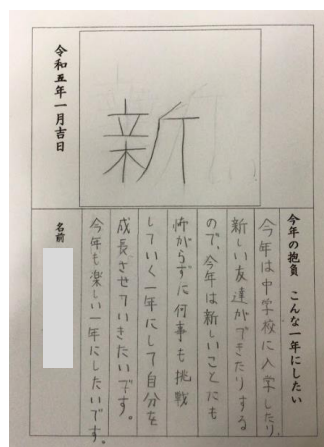 新
令和五年一月吉日
今年の抱負 こんな一年にしたい
今年は中学校に入学したり、
新しい友達ができたりする
ので、今年は新しいことにも
怖がらずに何事も挑戦
していく一年にして自分を
成長させていきたいです。
今年も楽しい一年にしたいです。
名前